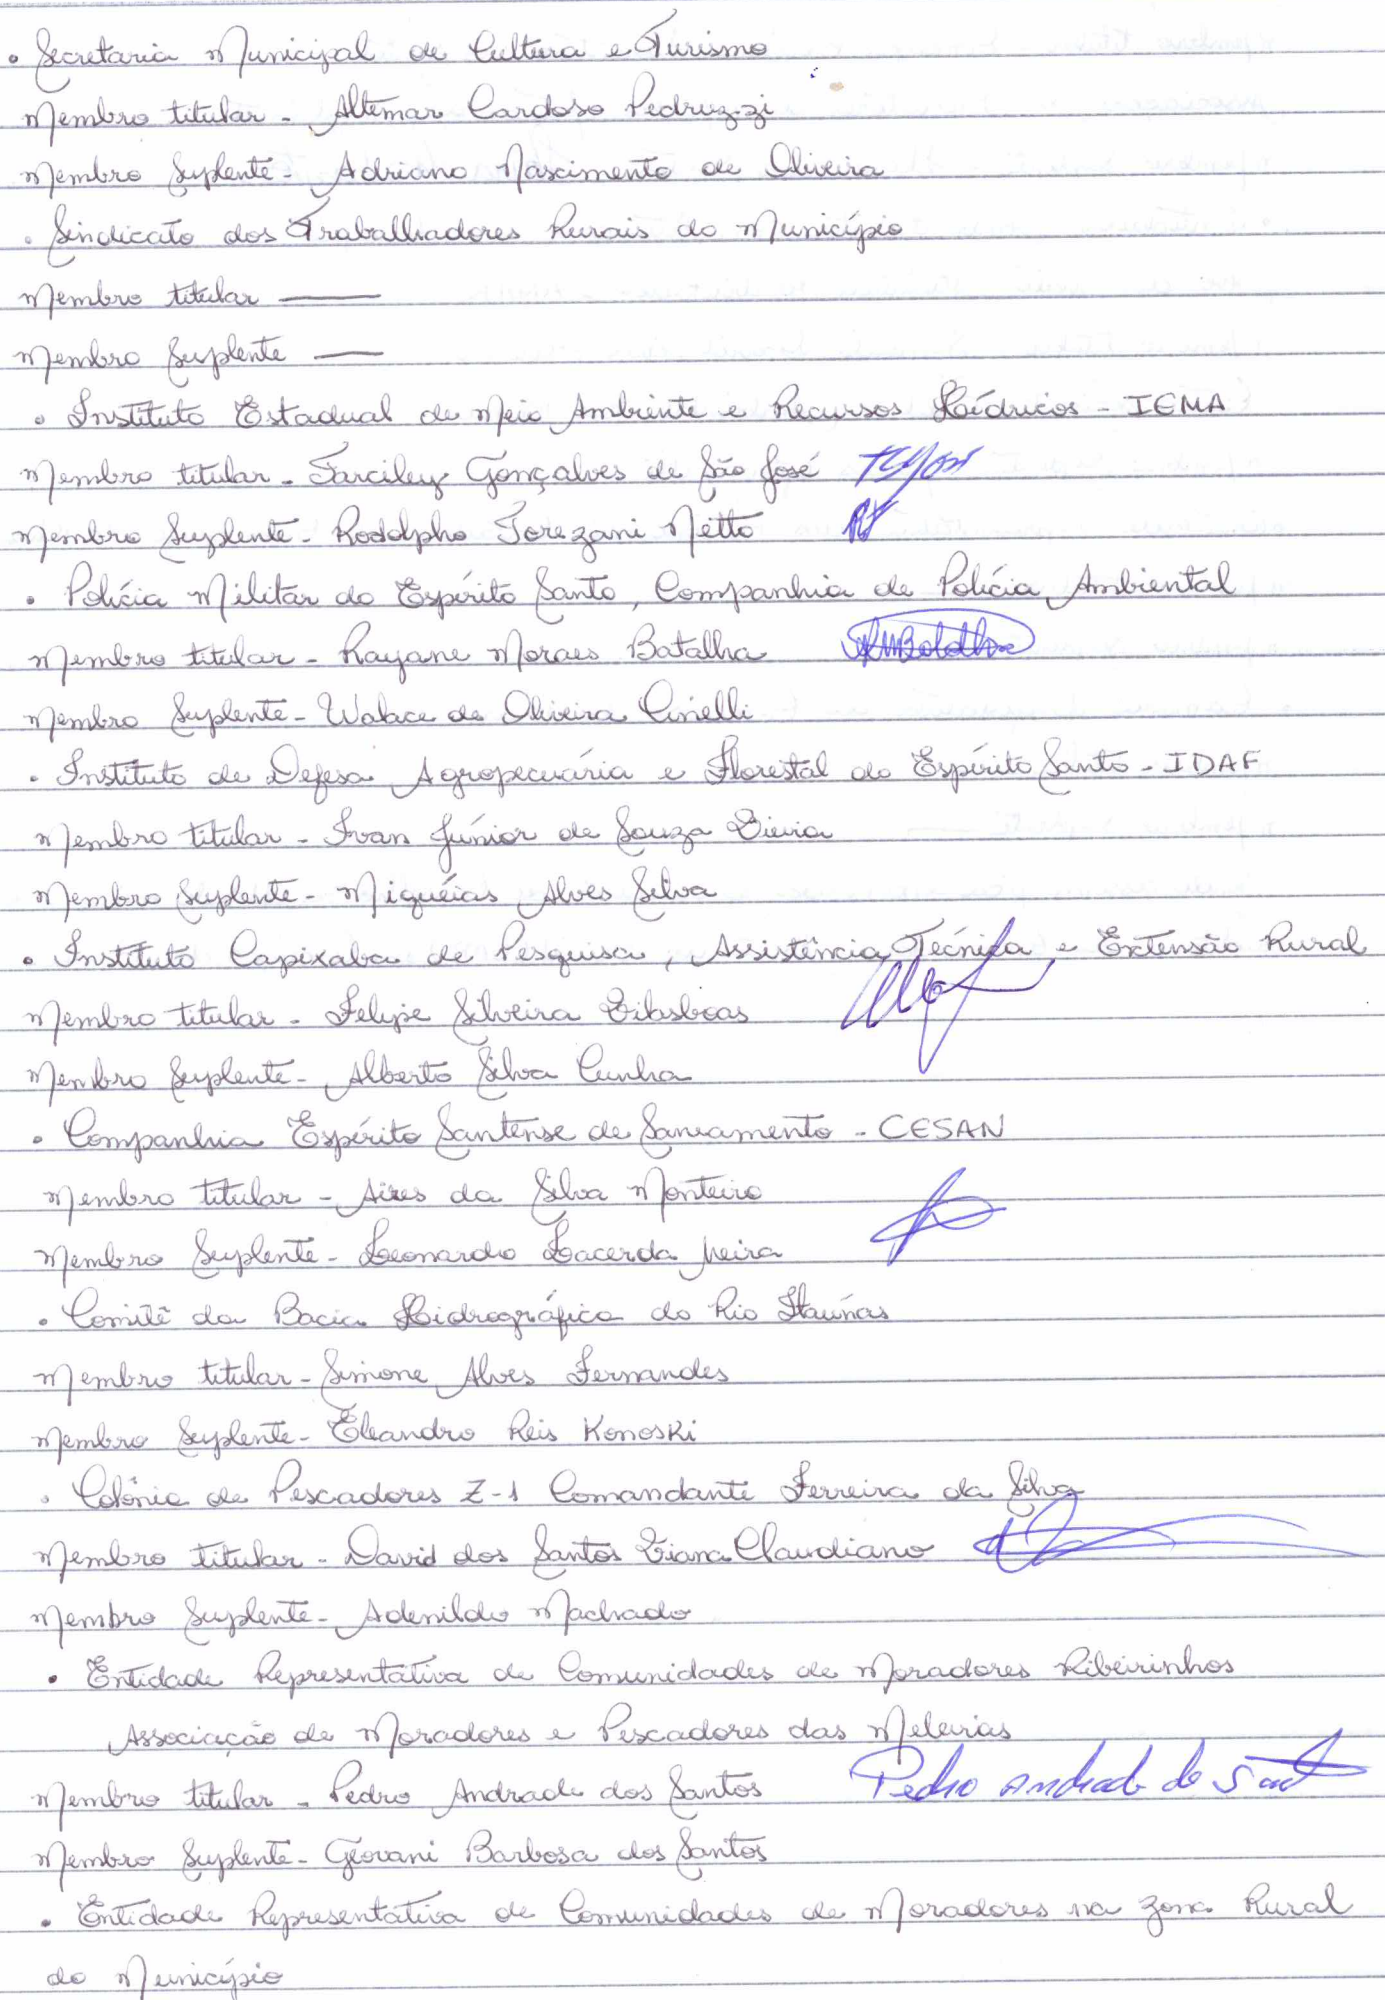 • Secretaria Municipal de Cultura e Turismo
Membro titular - Altemar Cardoso Pedruzzi
Membro Suplente - Adriano Nascimento de Oliveira
• Sindicato dos Trabalhadores Rurais do Município
Membro titular ——
Membro Suplente ——
• Instituto Estadual de Meio Ambiente e Recursos Hídricos - IEMA
Membro titular - Tarciley Gonçalves de São José
Membro Suplente - Rodolpho Torezani Netto
• Polícia Militar do Espírito Santo, Companhia de Polícia Ambiental
Membro titular - Rayane Moraes Batalha
Membro Suplente - Walace de Oliveira Cinelli
• Instituto de Defesa Agropecuária e Florestal do Espírito Santo - IDAF
Membro titular - Ivan Júnior de Souza Vieira
Membro Suplente - Miquéias Alves Silva
• Instituto Capixaba de Pesquisa, Assistência Técnica e Extensão Rural
Membro titular - Felipe Silveira Vilasboas
Membro Suplente - Alberto Silva Cunha
• Companhia Espírito Santense de Saneamento - CESAN
Membro titular - Aires da Silva Monteiro
Membro Suplente - Leonardo Lacerda Meira
• Comitê da Bacia Hidrográfica do Rio Itaúnas
Membro titular - Simone Alves Fernandes
Membro Suplente - Eleandro Reis Konoski
• Colônia de Pescadores Z-1 Comandante Ferreira da Silva
Membro titular - David dos Santos Viana Claudiano
Membro Suplente - Adenildo Machado
• Entidade Representativa de Comunidades de Moradores Ribeirinhos
Associação de Moradores e Pescadores das Meleiras
Membro titular - Pedro Andrade dos Santos Pedro Andrade do
Membro Suplente - Geovani Barbosa dos Santos
• Entidade Representativa de Comunidades de Moradores na Zona Rural
do Município